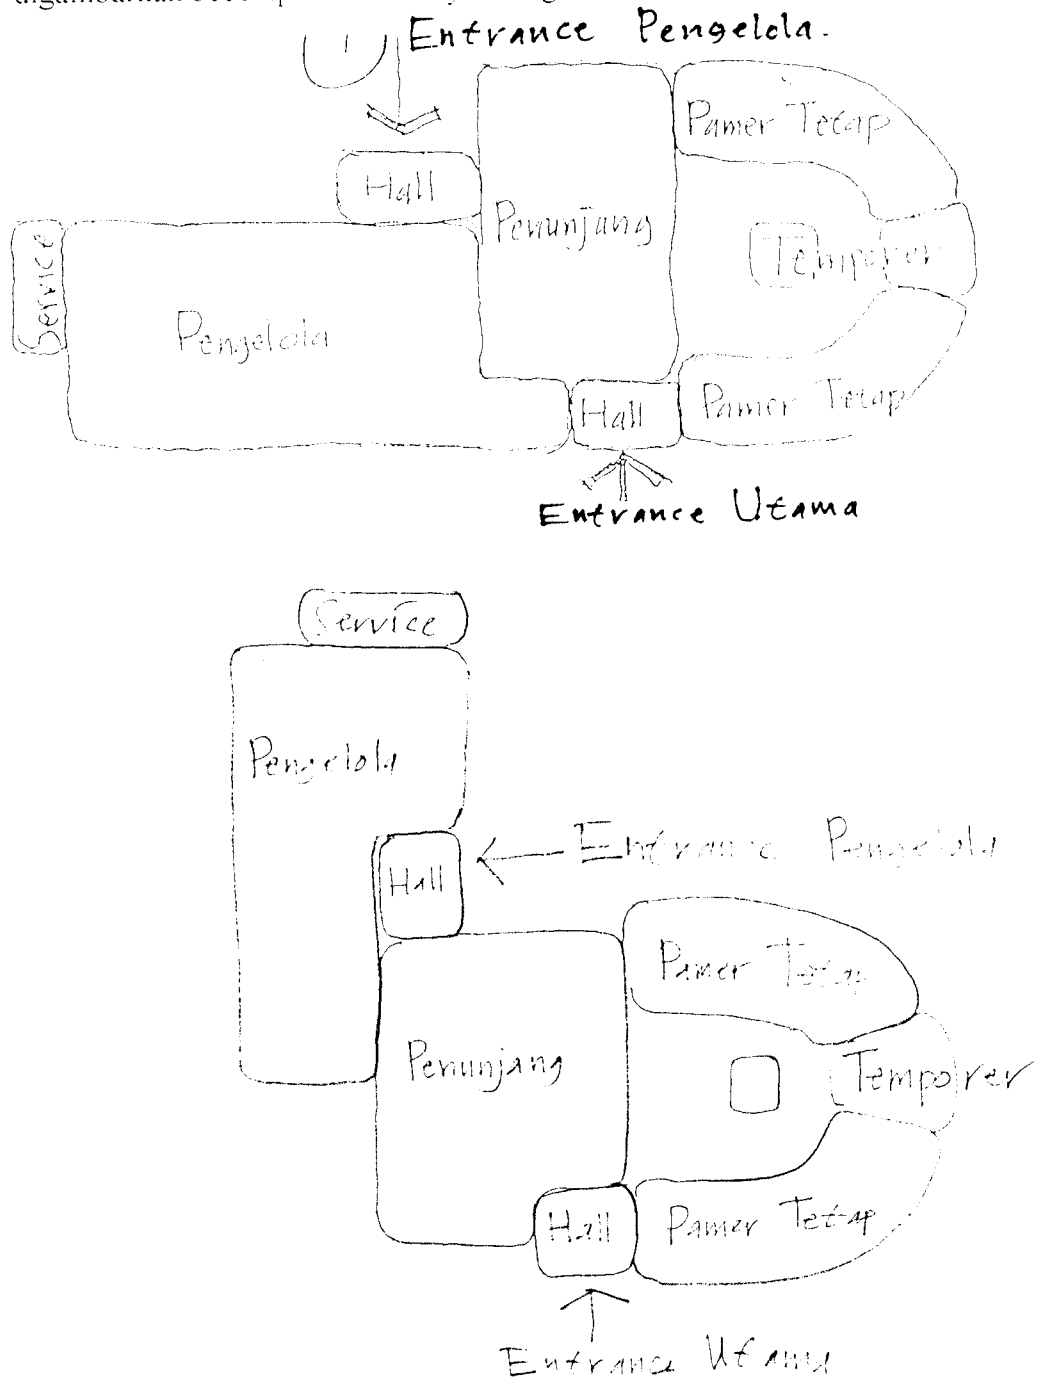 Entrance Pengelola.
Pamer Tetap
Hall
Penunjang
Temporer
Service
Pengelola
Hall
Pamer Tetap
Entrance Utama
Service
Pengelola
Entrance Pengelola
Hall
Pamer Tetap
Penunjang
Temporer
Hall
Pamer Tetap
Entrance Utama